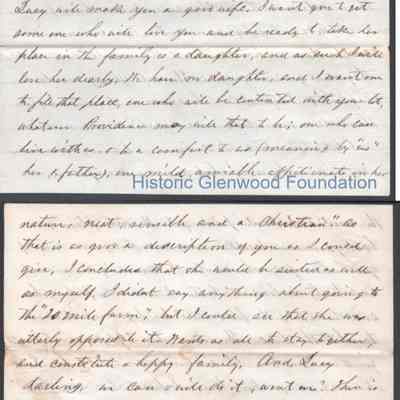 Lucy will make you a good wife. I want you to get
some one who will love you and be ready to take her
place in the family as a daughter, and as such I will
love her dearly. We have no daughter, and I want one
to fill that place, one who will be contented with your lot,
whatever Providence may rule that to be; one who can
live with us & be a comfort to us (meaning by "us"
her & father), one mild, amiable affectionate in her
Historic Glenwood Foundation
nature, neat, sensible and a Christian." As
that is as good a description of you as I could
give, I concluded that she would be suited as well
as myself. I didnt say anything about going to
the "20 mile farm", but I could see that she was
utterly opposed to it. Wants us all to stay together
and constitute a happy family. And Lucy
darling, we can do it, wont we? This is